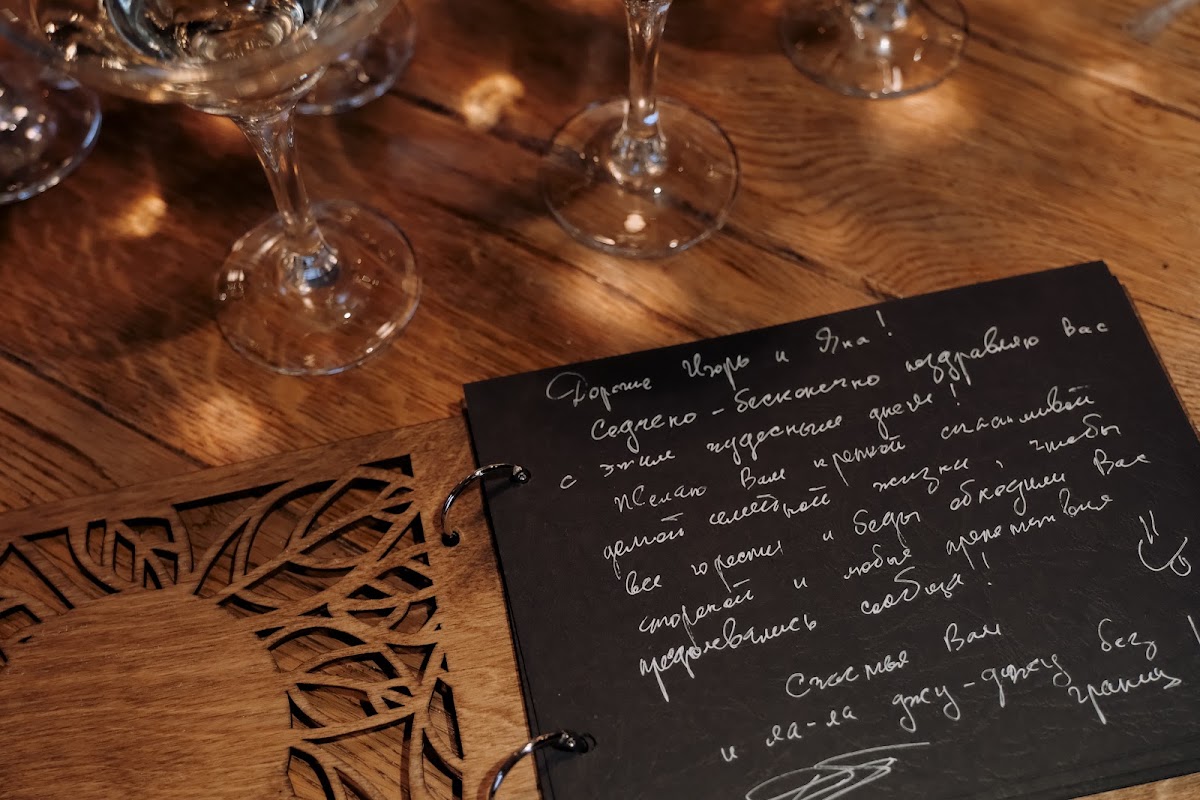 Дорогие Игорь и Яна!
Седлено-бесконечно поздравляю Вас
с этим чудесным днем!
Желаю Вам крепкой счастливой
долгой семейной жизни, чтобы
все горести и беды обходили Вас
стороной и любые препятствия
преодолевались сообща!
Счастья Вам
и ла-ла джу-джу без
границ